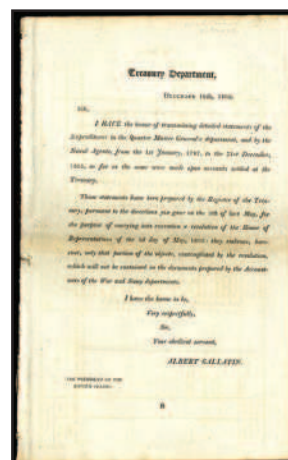 Treasury Department,
DECEMBER 16th, 1802.
SIR,
I HAVE the honor of transmitting detailed statements of the
Expenditures in the Quarter Master General's department, and by the
Naval Agents, from the 1st January, 1797, to the 31st December,
1801, so far as the same were made upon accounts settled at the
Treasury.
These statements have been prepared by the Register of the Trea-
sury, pursuant to the directions you gave on the of last May, for
the purpose of carrying into execution a resolution of the House of
Representatives of the 1st day of May, 1802: they embrace, how-
ever, only that portion of the objects, contemplated by the resolution,
which will not be contained in the documents prepared by the Account-
ants of the War and Navy departments.
I have the honor to be,
Very respectfully,
Sir,
Your obedient servant,
ALBERT GALLATIN.
THE PRESIDENT OF THE
UNITED STATES.